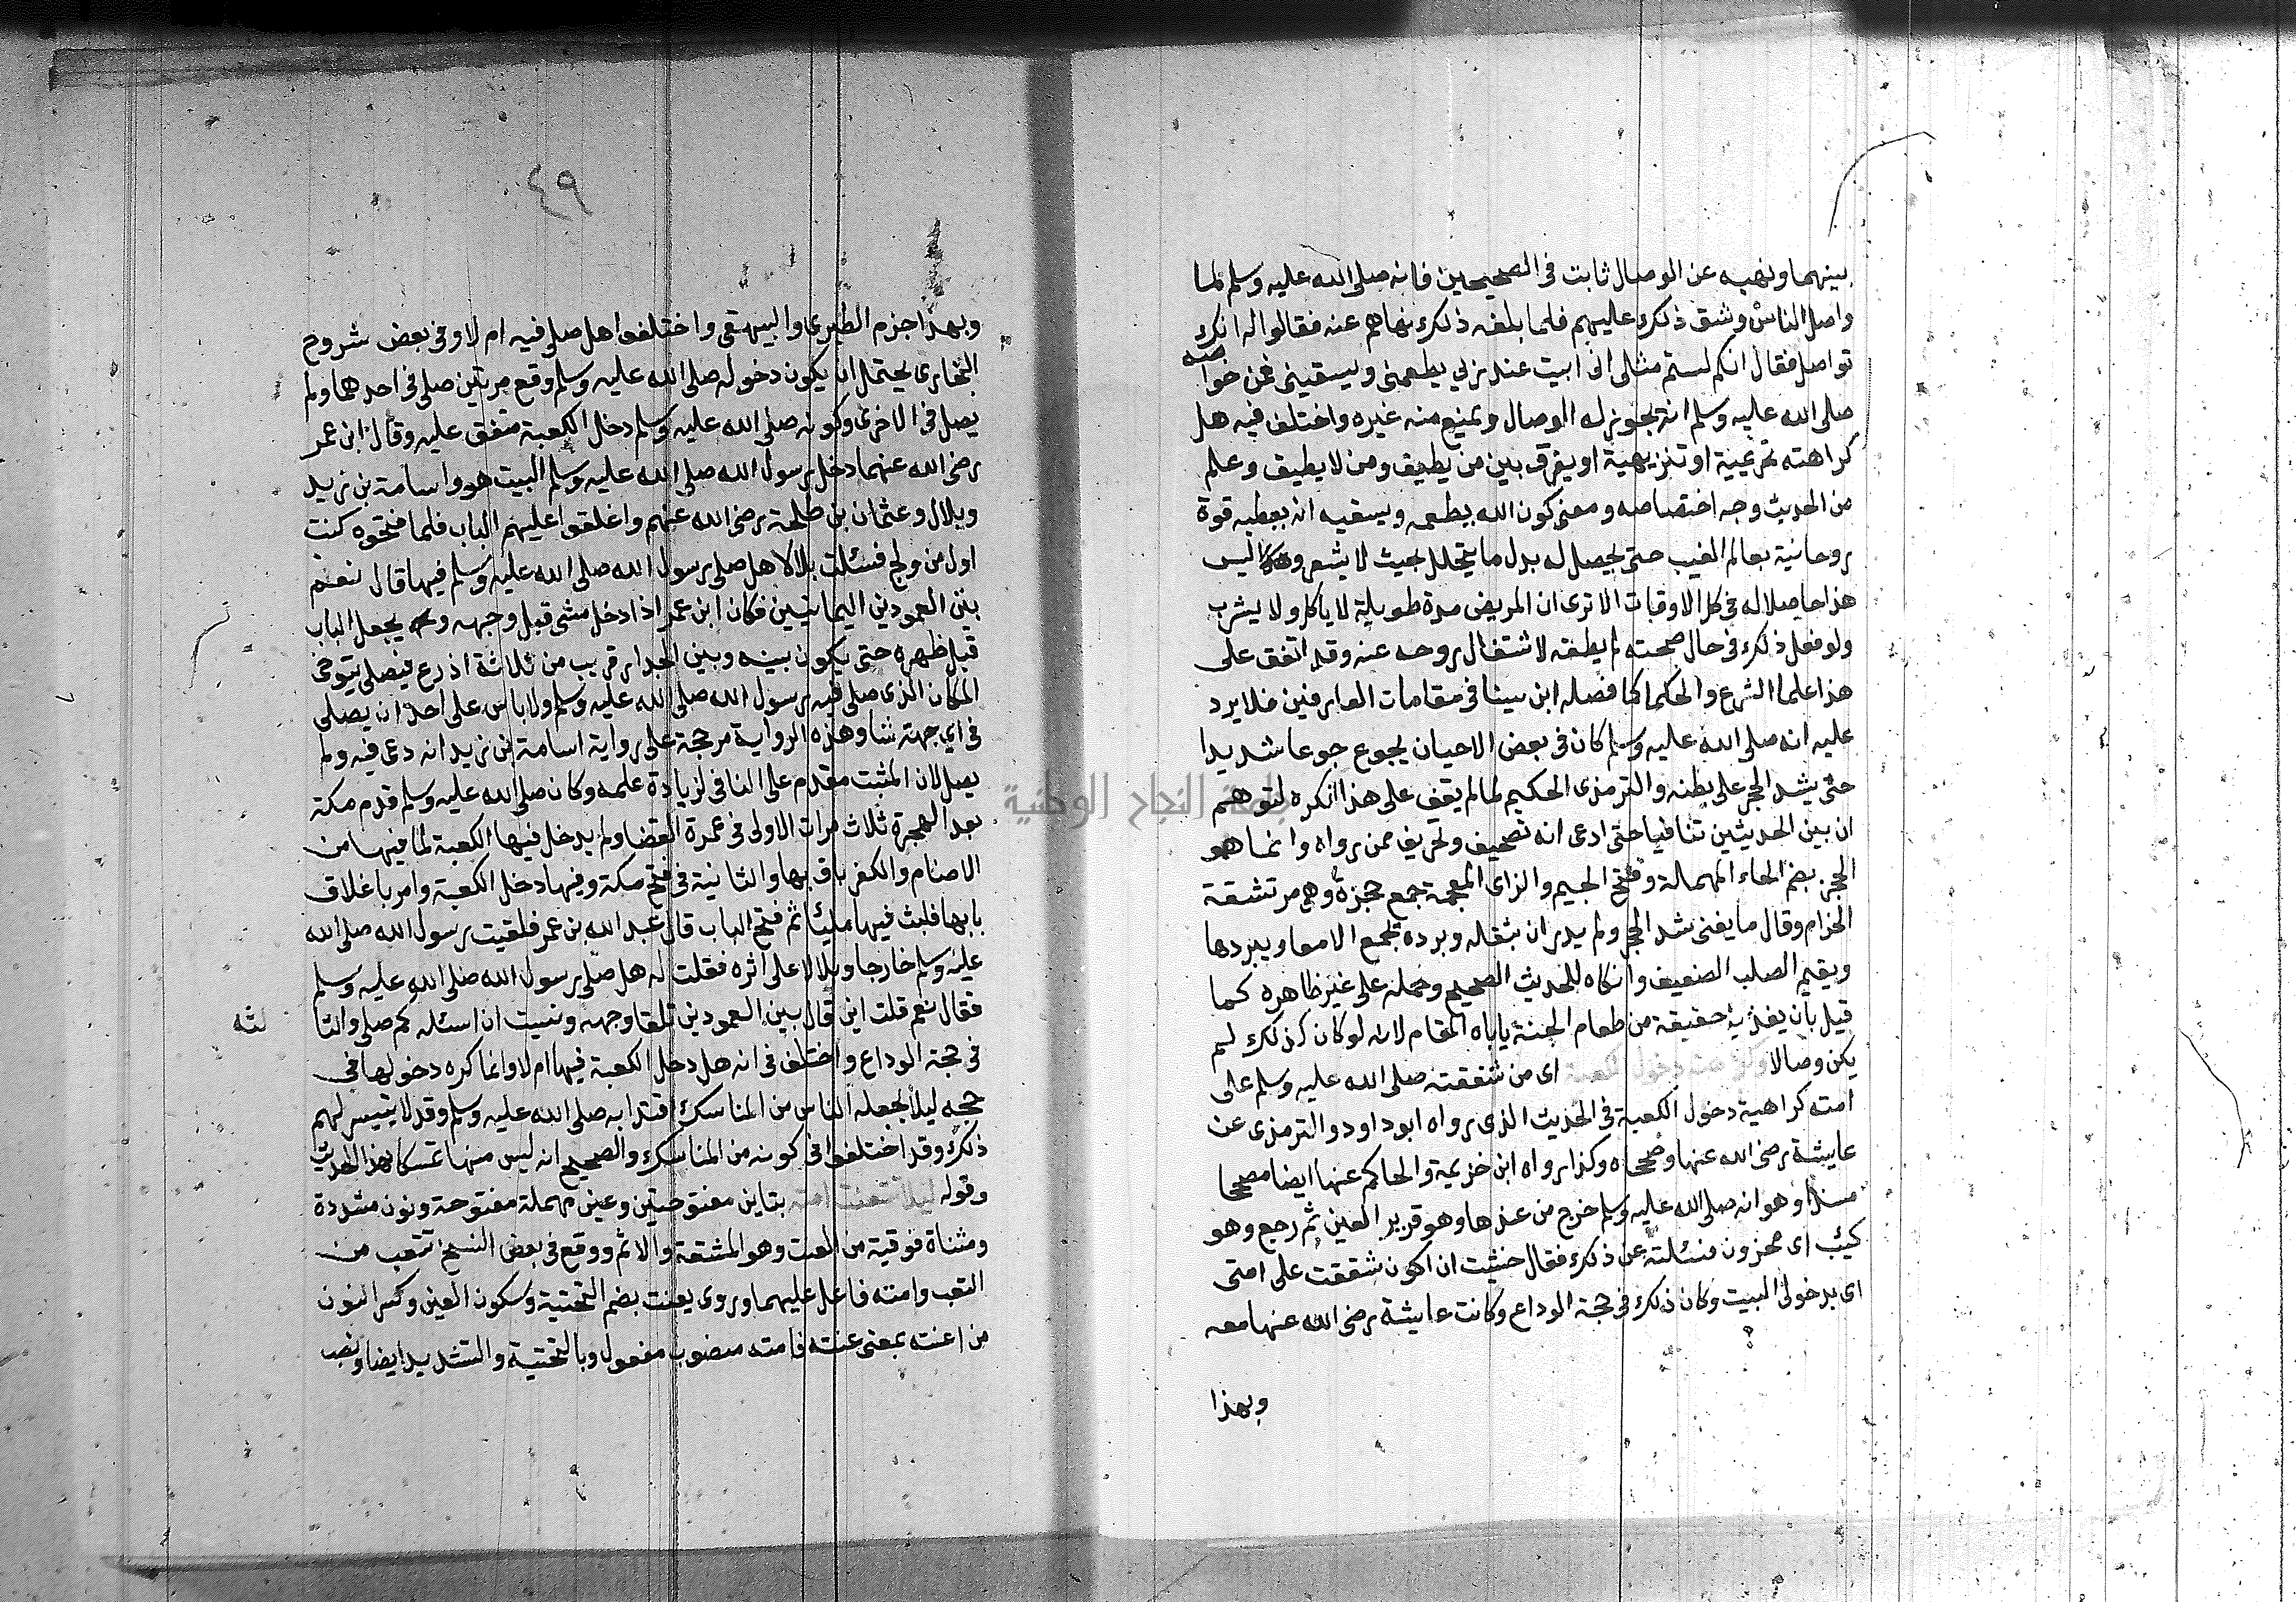 بينهما ونهيه عن الوصال ثابت في الصحيحين فانه صلى الله عليه وسلم لما
واصل الناس وشق ذلك عليهم فلما بلغه ذلك نهاهم عنه فقالوا له انك
تواصل فقال انكم لستم مثلى انى ابيت عند ربي يطعمنى ويسقينى فمن خواصه
صلى الله عليه وسلم انه يجوز له الوصال ويمنع منه غيره واختلف فيه هل
كراهته تحريمية او تنزيهية او يفرق بين من يطيق ومن لا يطيق وعلم
من الحديث وجه اختصاصه ومعنى كون الله يطعمه ويسقيه انه يعطيه قوة
روحانية بعالم الغيب حتى يحصل له بدل ما يتحلل بحيث لا يشعر وليس
هذا حاصلا له في كل الاوقات الا ترى ان المريض مدة طويلة لا ياكل ولا يشرب
ولو فعل ذلك في حال صحته لم يطقه لاشتغال روحه عنه وقد اتفق على
هذا علما الشرع والحكما كما فصله ابن سينا في مقامات العارفين فلا يرد
عليه انه صلى الله عليه وسلم كان في بعض الاحيان يجوع جوعا شديدا
حتى يشد الحجر على بطنه والترمذى الحكيم لما لم يقف على هذا انكره لتوهم
ان بين الحديثين تنافيا حتى ادعى انه تصحيف وتحريف ممن رواه وانما هو
الحجز بضم الحاء المهملة وفتح الجيم والزاى المعجمة جمع حجزة وهى مرتشقة
الحزام وقال ما يغنى شد الحجر ولم يدر ان بثقله وبرده تجمع الامعا ويبردها
ويقيم الصلب الضعيف وانكاه للحديث الصحيح وحمله على غير ظاهره كما
قيل بان يغذيه حقيقة من طعام الجنة ياباه المقام لانه لو كان كذلك لم
يكن وصالا وكراهته دخول الكعبة اى من شفقته صلى الله عليه وسلم على
امته كراهية دخول الكعبة في الحديث الذى رواه ابو داود والترمذى عن
عايشة رضى الله عنها وصححاه وكذا رواه ابن خزيمة والحاكم عنها ايضا مصححا
مسندا وهو انه صلى الله عليه وسلم خرج من عندها وهو قرير العين ثم رجع وهو
كيئب اى محزون فسئلته عن ذلك فقال خشيت ان اكون شققت على امتى
اى بدخولى البيت وكان ذلك في حجة الوداع وكانت عايشة رضى الله عنها معه
وبهذا
٤٩
وبهذا جزم الطبرى والبيهقى واختلفوا هل صلى فيه ام لا وفي بعض شروح
البخارى يحتمل ان يكون دخوله صلى الله عليه وسلم وقع مرتين صلى في احدهما ولم
يصل في الاخرى وكونه صلى الله عليه وسلم دخل الكعبة متفق عليه وقال ابن عمر
رضى الله عنهما دخل رسول الله صلى الله عليه وسلم البيت هو واسامة بن زيد
وبلال وعثمان بن طلحة رضى الله عنهم واغلقوا عليهم الباب فلما فتحوه كنت
اول من ولج فسئلت بلالا هل صلى رسول الله صلى الله عليه وسلم فيها قال نعم
بين العمودين اليمانيين فكان ابن عمر اذا دخل مشى قبل وجهه ويجعل الباب
قبل ظهره حتى يكون بينه وبين الجدار قريب من ثلاثة اذرع فيصلى يتوخى
المكان الذى صلى فيه رسول الله صلى الله عليه وسلم ولا باس على احد ان يصلى
في اي جهة شا وهذه الرواية مرجحة على رواية اسامة بن زيد انه دعى فيه ولم
يصل لان المثبت مقدم على النافى لزيادة علمه وكان صلى الله عليه وسلم قدم مكة
بعد الهجرة ثلاث مرات الاولى في عمرة القضا ولم يدخل فيها الكعبة لما فيها من
الاصنام والكفر باق بها والثانية في فتح مكة وفيها دخل الكعبة وامر باغلاق
بابها فلبث فيها مليئا ثم فتح الباب قال عبد الله بن عمر فلقيت رسول الله صلى الله
عليه وسلم خارجا وبلالا على اثره فقلت له هل صلى رسول الله صلى الله عليه وسلم
فقال نعم قلت اين قال بين العمودين تلقا وجهه ونسيت ان اسئله كم صلى والثا
لثه
في حجة الوداع واختلف في انه هل دخل الكعبة فيها ام لا وانما كره دخولها في
حجه ليلا يجعله الناس من المناسك اقتدا به صلى الله عليه وسلم وقد لا يتيسر لهم
ذلك وقد اختلفوا في كونه من المناسك والصحيح انه ليس منها تمسكا بهذا الحديث
وقوله ليلا تتعنت امته بتاين مفتوحتين وعين مهملة مفتوحة ونون مشددة
ومثناة فوقية من العنت وهو المشقة والاثم ووقع في بعض النسخ تتعب من
التعب وامته فاعل عليهما وروى يعنت بضم التحتية وسكون العين وكسر النون
من اعنته بمعنى عنته فامته منصوب مفعول وبالتحتية والتشديد ايضا ونصب
جامعة النجاح الوطنية